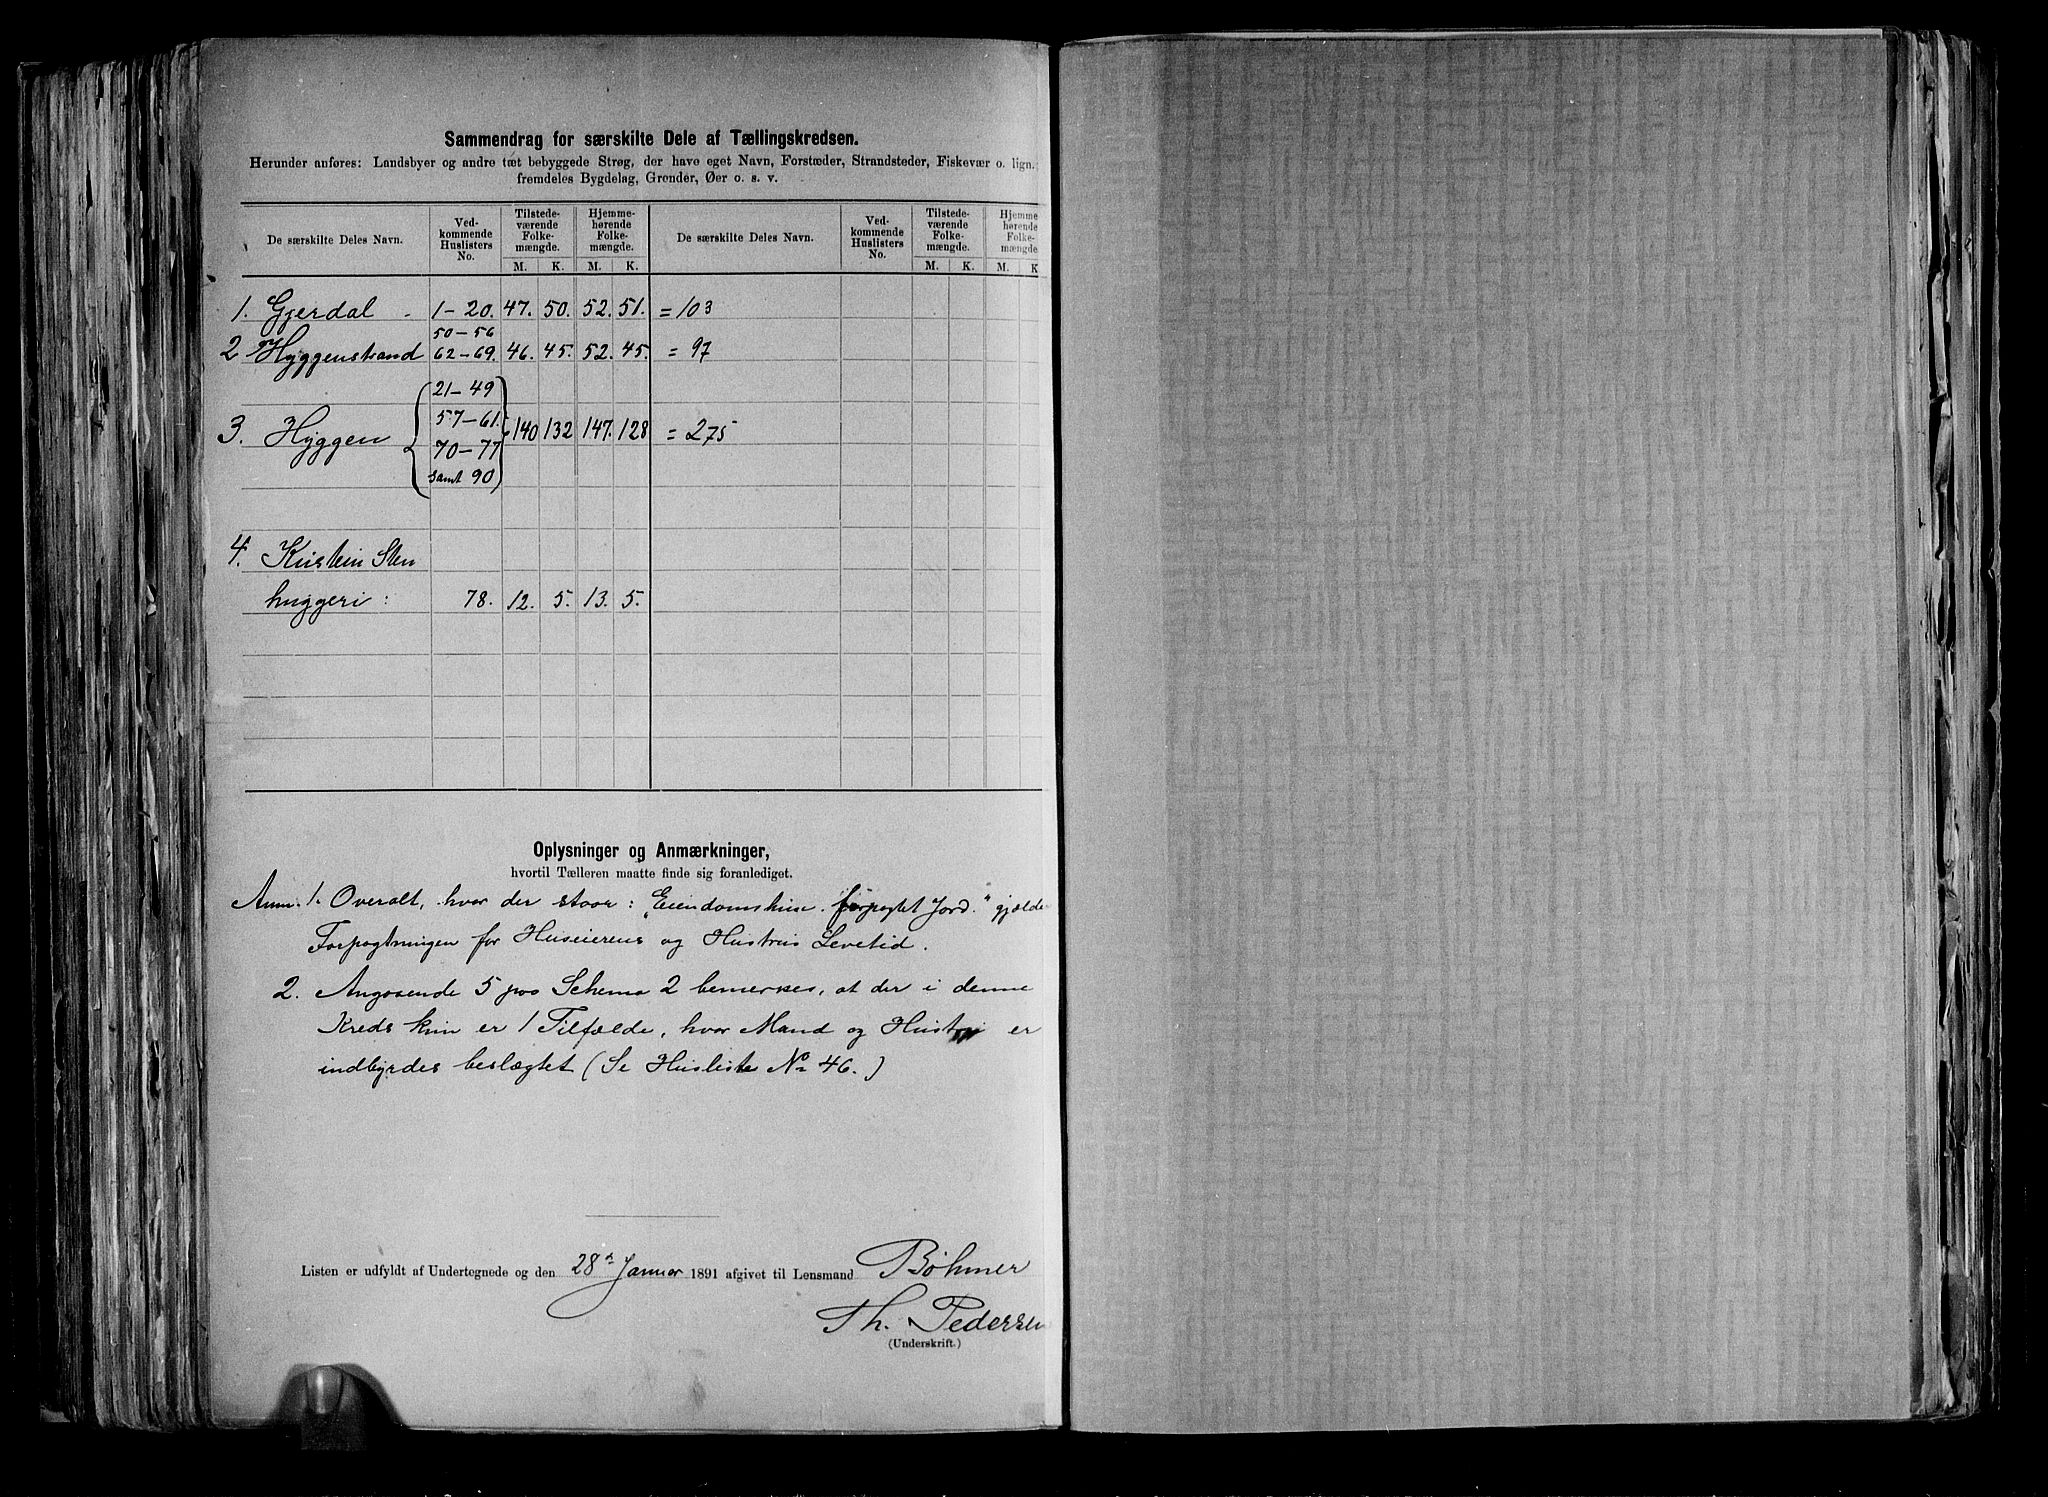 Sammendrag for særskilte Dele af Tællingskredsen.
Herunder anføres: Landsbyer og andre tæt bebyggede Strøg, der have eget Navn, Forstæder, Strandsteder, Fiskevær o. lign.;
fremdeles Bygdelag, Grender, Øer o. s. v.
De særskilte Deles Navn. Vedkommende Huslisters No. Tilstedeværende Folkemængde. M. K. Hjemmehørende Folkemængde. M. K. De særskilte Deles Navn. Vedkommende Huslisters No. Tilstedeværende Folkemængde. M. K. Hjemmehørende Folkemængde. M. K
1. Gjerdal 1-20. 47. 50. 52. 51. = 103
50-56
2 Hyggenstrand 62-69. 46. 45. 52. 45. = 97
21-49
57-61.
3. Hyggen 140 132 147. 128 = 275
70-77
samt 90
4. Kinstein Sten
huggeri : 78. 12. 5. 13. 5.
Oplysninger og Anmærkninger,
hvortil Tælleren maatte finde sig foranlediget.
Anm. 1. Overalt, hvor der staar: „Eiendomshuse forpagtet Jord." gjælde
Forpagtningen for Huseierens og Hustrus Levetid.
2. Angaaende 5 paa Schema 2 bemerkes, at der i denne
Kreds kun er 1 Tilfælde, hvor Mand og Hustru er
indbyrdes beslægtet (Se Husliste No 46.)
Listen er udfyldt af Undertegnede og den 28de Januar 1891 afgivet til Lensmand Bøhmer
Th. Pedersen
(Underskrift.)